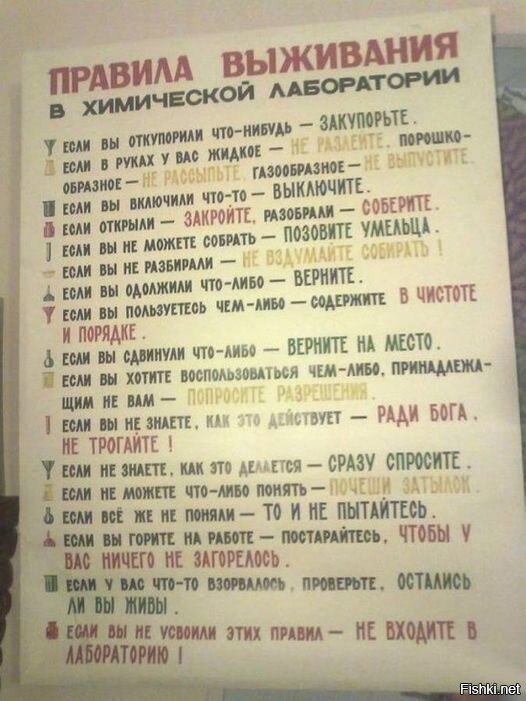 ПРАВИЛА ВЫЖИВАНИЯ
В ХИМИЧЕСКОЙ ЛАБОРАТОРИИ
ЕСЛИ ВЫ ОТКУПОРИЛИ ЧТО-НИБУДЬ — ЗАКУПОРЬТЕ.
ЕСЛИ В РУКАХ У ВАС ЖИДКОЕ — НЕ РАЗЛЕЙТЕ, ПОРОШКО-
ОБРАЗНОЕ — НЕ РАССЫПЬТЕ, ГАЗООБРАЗНОЕ — НЕ ВЫПУСТИТЕ.
ЕСЛИ ВЫ ВКЛЮЧИЛИ ЧТО-ТО — ВЫКЛЮЧИТЕ.
ЕСЛИ ОТКРЫЛИ — ЗАКРОЙТЕ, РАЗОБРАЛИ — СОБЕРИТЕ.
ЕСЛИ ВЫ НЕ МОЖЕТЕ СОБРАТЬ — ПОЗОВИТЕ УМЕЛЬЦА.
ЕСЛИ ВЫ НЕ РАЗБИРАЛИ — НЕ ВЗДУМАЙТЕ СОБИРАТЬ!
ЕСЛИ ВЫ ОДОЛЖИЛИ ЧТО-ЛИБО — ВЕРНИТЕ.
ЕСЛИ ВЫ ПОЛЬЗУЕТЕСЬ ЧЕМ-ЛИБО — СОДЕРЖИТЕ В ЧИСТОТЕ
И ПОРЯДКЕ.
ЕСЛИ ВЫ СДВИНУЛИ ЧТО-ЛИБО — ВЕРНИТЕ НА МЕСТО.
ЕСЛИ ВЫ ХОТИТЕ ВОСПОЛЬЗОВАТЬСЯ ЧЕМ-ЛИБО, ПРИНАДЛЕЖА-
ЩИМ НЕ ВАМ — ПОПРОСИТЕ РАЗРЕШЕНИЯ.
ЕСЛИ ВЫ НЕ ЗНАЕТЕ, КАК ЭТО ДЕЙСТВУЕТ — РАДИ БОГА.
НЕ ТРОГАЙТЕ!
ЕСЛИ НЕ ЗНАЕТЕ, КАК ЭТО ДЕЛАЕТСЯ — СРАЗУ СПРОСИТЕ.
ЕСЛИ НЕ МОЖЕТЕ ЧТО-ЛИБО ПОНЯТЬ — ПОЧЕШИ ЗАТЫЛОК.
ЕСЛИ ВСЁ ЖЕ НЕ ПОНЯЛИ — ТО И НЕ ПЫТАЙТЕСЬ.
ЕСЛИ ВЫ ГОРИТЕ НА РАБОТЕ — ПОСТАРАЙТЕСЬ, ЧТОБЫ У
ВАС НИЧЕГО НЕ ЗАГОРЕЛОСЬ.
ЕСЛИ У ВАС ЧТО-ТО ВЗОРВАЛОСЬ, ПРОВЕРЬТЕ, ОСТАЛИСЬ
ЛИ ВЫ ЖИВЫ.
ЕСЛИ ВЫ НЕ УСВОИЛИ ЭТИХ ПРАВИЛ — НЕ ВХОДИТЕ В
ЛАБОРАТОРИЮ!
Fishki.net